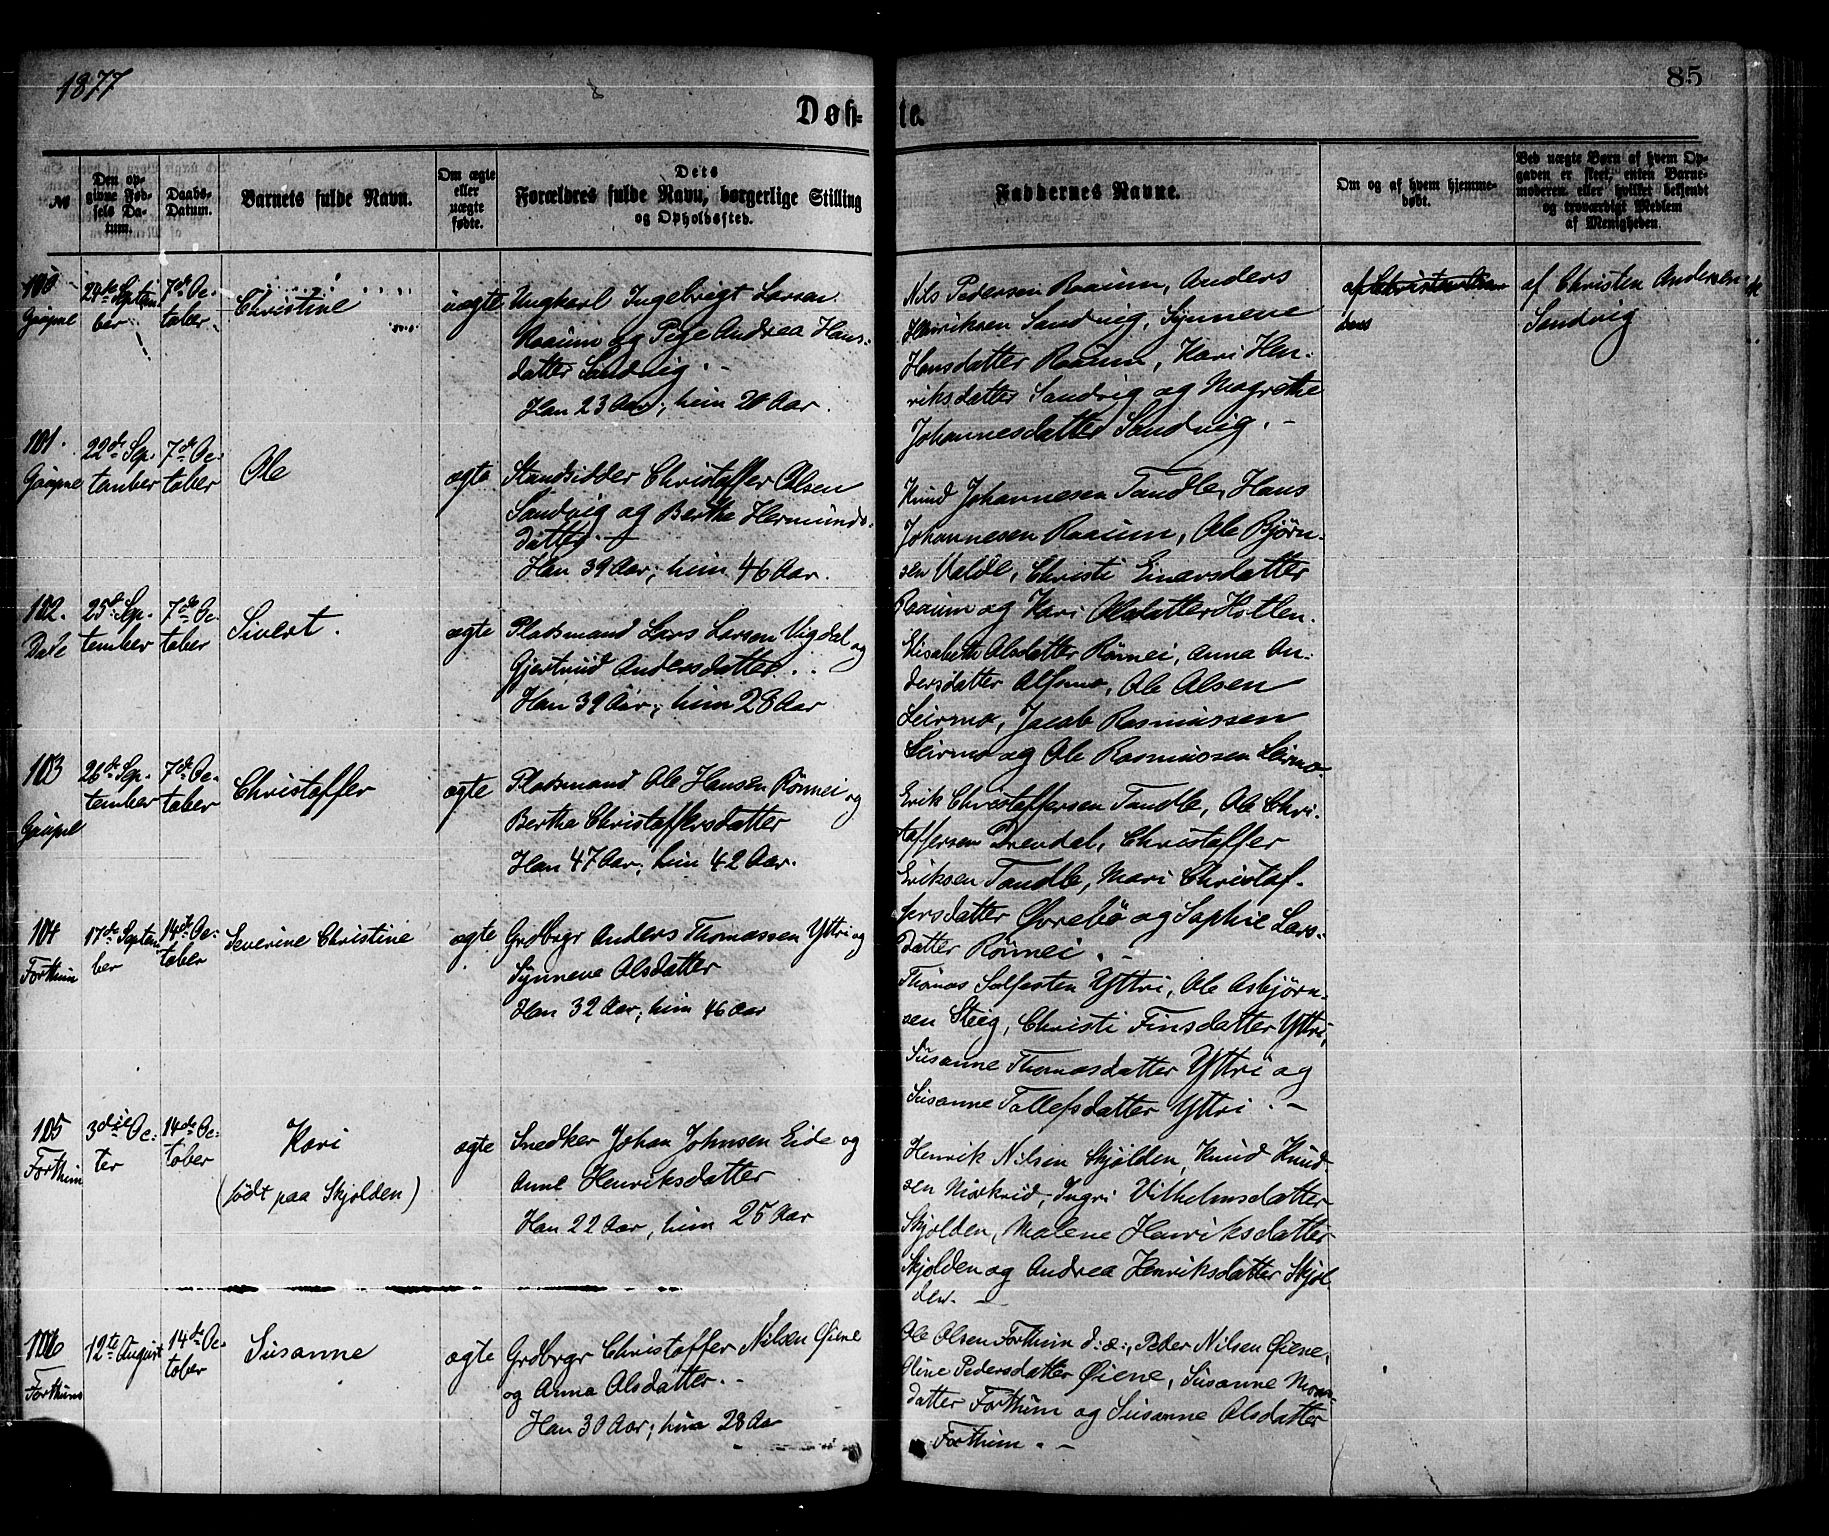 1877
85
Døbte.
№
Den opgivne Fødsels Datum.
Daabs-Datum.
Barnets fulde Navn.
Om ægte eller uægte fødte.
Dets Forældres fulde Navn, borgerlige Stilling og Opholdssted.
Faddernes Navne.
Om og af hvem hjemmedøbt.
Ved uægte Børn af hvem Opgaven er skeet, enten Barnemoderen eller hvilket bekjendt og troværdigt Medlem af Menigheden.
100
Gaupne
24de Septem
ber
7de Oc-
tober
Christine
uægte
Ungkarl Ingebrigt Larsen
Raaum og Pige Andrea Hans-
datter Sandvig. -
Han 23 Aar; hun 20 Aar.
Nils Pedersen Raaum, Anders
Henriksen Sandvig, Synneve
Hansdatter Raaum, Kari Hen-
riksdatter Sandvig og Magrethe
Johannesdatter Sandvig. -
af Christen Andersen
Sandvig
101.
Gaupne
22de Sep-
tember
7de Oc-
tober
Ole
ægte
Strandsidder Christoffer Olsen
Sandvig og Berthe Hermunds-
datter. -
Han 39 Aar; hun 46 Aar.
Knud Johannesen Tandle, Hans
Johannesen Raaum, Ole Bjørn-
sen Valde, Christi Einersdatter
Raaum og Kari Olsdatter
102.
Dale
25de Sep-
tember
7de Oc-
tober
Sivert.
ægte
Pladsmand Lars Larsen Vigdal og
Gjertrud Andersdatter. .
Han 39 Aar; hun 28 Aar
Elisabeth Olsdatter Rønnei, Anna An-
dersdatter Alsmo, Ole Olsen
Leirmo, Jacob Rasmussen
Leirmo og Ole Rasmussen Leirmo
103
Gaupne
26de Sep-
tember
7de Oc-
tober
Christoffer
ægte
Pladsmand Ole Hansen Rønnei og
Berthe Christoffersdatter
Han 47 Aar; hun 42 Aar.
Erik Christoffersen Tandle, Ole Chri-
stoffersen Drevdal, Christoffer
Eriksen Tandle, Mari Christof-
fersdatter Øvrebø og Sophie Lars-
datter Rønnei. -
104
Forthun
17de Septem
ber
14de Oc-
tober
Severine Christine
ægte
Grdbrgr Anders Thomassen Yttri og
Synneve Olsdatter
Han 32 Aar; hun 46 Aar
Thomas Solfesten Yttri, Ole Asbjørn-
sen Steig, Christi Finsdatter Yttri,
Susanne Thomasdatter Yttri og
Susanne Tollefsdatter Yttri. -
105
Forthun
3die Oc-
ter
14de Oc-
tober
Kari
(født paa Skjolden)
ægte
Snedker Johan Johnsen Eide og
Anne Henriksdatter
Han 22 Aar, hun 25 Aar
Henrik Nilsen Skjolden, Knud Knud
sen Mørkrid, Ingri Vilhelmsdatter
Skjolden, Malene Henriksdatter
Skjolden og Andrea Henriksdatter Skjol
den. -
106
Forthun
12te August
14de Oc-
tober
Susanne
ægte
Grdbrgr Christoffer Nilsen Øiene
og Anna Olsdatter. -
Han 30 Aar; hun 28 Aar
Ole Olsen Forthun d: æ:, Peder Nilsen Øiene,
Oline Pedersdatter Øiene, Susanne Mons-
datter Forthun og Susanne Olsdatter
Forthun. -